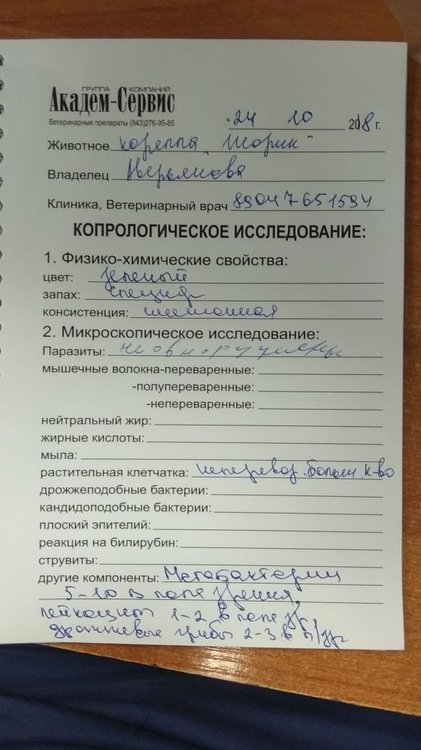 ГРУППА КОМПАНИЙ
Академ-Сервис
Ветеринарные препараты (843)276-95-85
"24 10 2018 г.
Животное корелла "Шорик"
Владелец
Клиника, Ветеринарный врач 89047651594
КОПРОЛОГИЧЕСКОЕ ИССЛЕДОВАНИЕ:
1. Физико-химические свойства:
цвет: зеленый
запах: специф
консистенция:
2. Микроскопическое исследование:
Паразиты: не обнаружены
мышечные волокна-переваренные:
-полупереваренные:
-непереваренные:
нейтральный жир:
жирные кислоты:
мыла:
растительная клетчатка: неперевар. больш к-во
дрожжеподобные бактерии:
кандидоподобные бактерии:
плоский эпителий:
реакция на билирубин:
струвиты:
другие компоненты: Мегабактерии
5-10 в поле зрения,
лейкоциты 1-2 в поле зр,
дрожжевые грибы 2-3 в п/зр